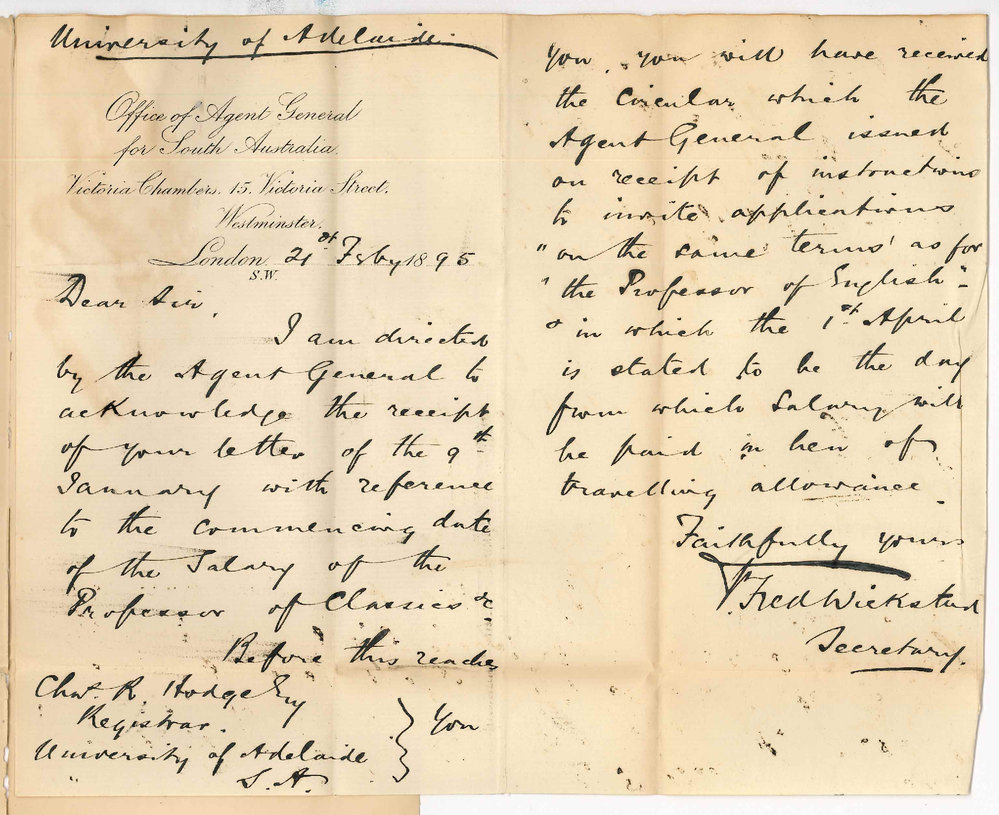 University of Adelaide.
Office of Agent General
for South Australia.
Victoria Chambers. 15. Victoria Street.
Westminster.
London 21st Feby 1895
S.W.
Dear Sir,
I am directed
by the Agent General to
acknowledge the receipt
of your letter of the 9th
January with reference
to the commencing date
of the Salary of the
Professor of Classics &c
Before this reaches
Chas. R. Hodge Esq
Registrar.
University of Adelaide
" S.A.
you
you. you will have received
the circular which the
Agent General issued
on receipt of instructions
to invite applications
"on the same terms as for
"the Professor of English"-
in which the 1st April
is stated to be the day
from which Salary will
be paid in lieu of
travelling allowance.
Faithfully yours
Fred Wicksteed
Secretary.